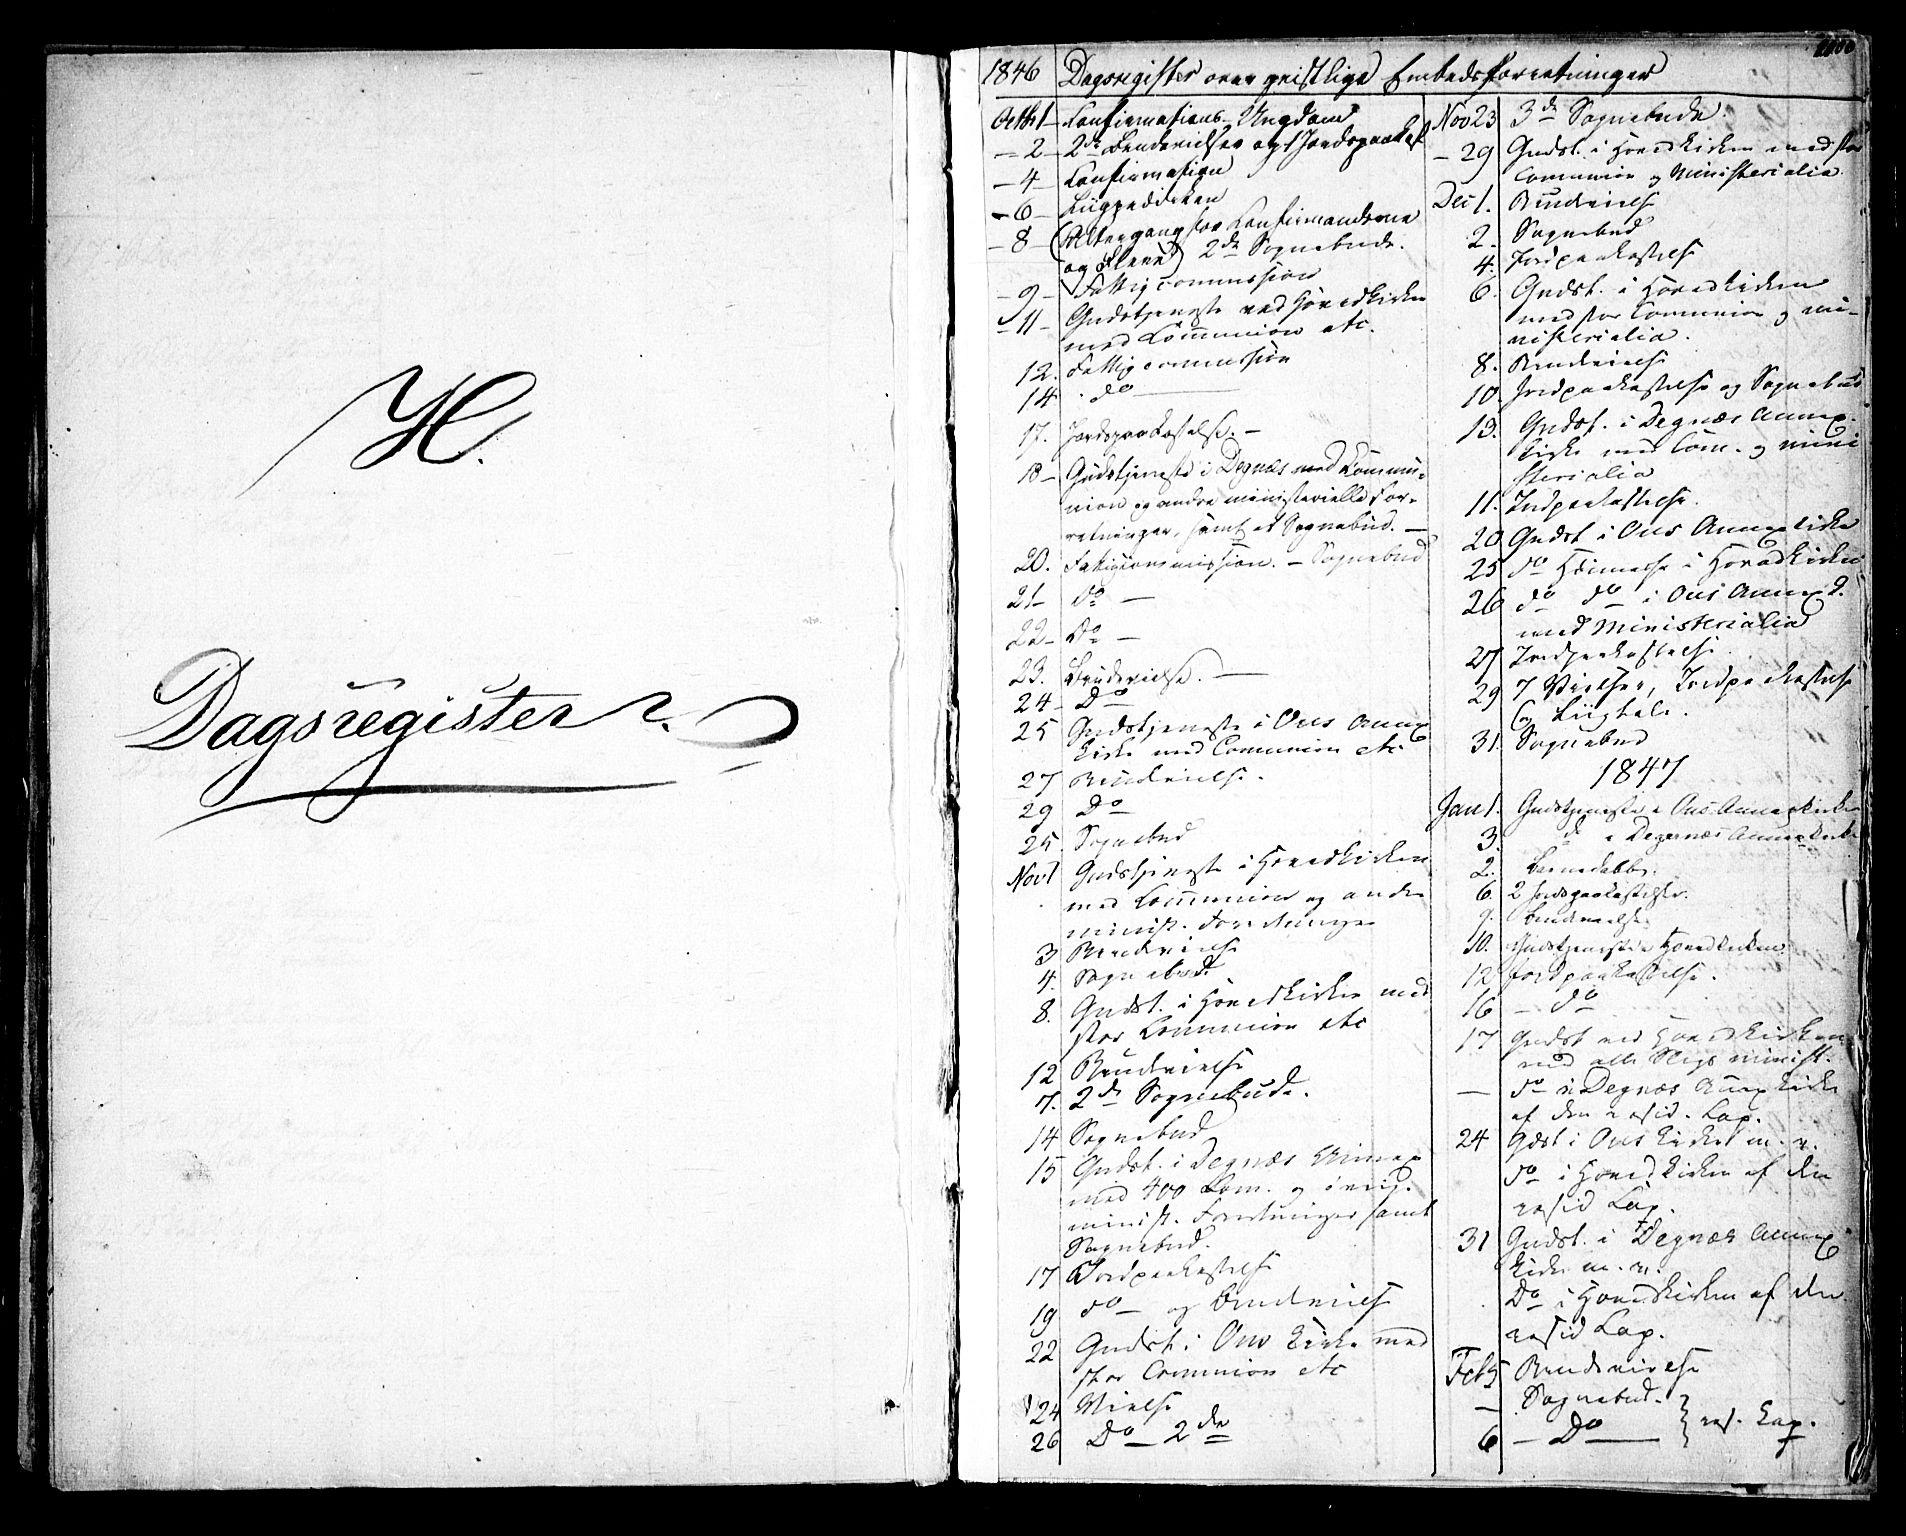 H.
Dagsregister
1846 Dagsregister over geistlige Embedsforretninger
Octbr 1 Confirmations-Ungdom
2 2de Brudevielser og 1 Jordspaakast
4 Confirmation
6
8 (Altergang for Confirmanderne
og Flere) 2de Sognebude.
9 Fattigcommission
11 Gudstjeneste ved Hovedkirken
med Communion etc.
12. Fattigcommission
14 do
17. Jordspaakastelse.
18 Gudstjeneste i Degnæs med Commu-
nion og andre ministerielle For-
retninger, samt et Sognebud.
20. Fattigcommission. - Sognebud
21 do
22 Do
23. Brudevielse.
24 Do
25 Gudstjeneste i Ous Annex
Kirke med Communion etc
27 Brudevielse.
29 Do
25 Sognebud
Nov 1 Gudstjeneste i Hovedkirken
med Communion og andre
minist. Forretninger
3 Brudevielse
4. Sognebud
8. Gudst. i Hovedkirken med
stor Communion etc
12 Brudevielse
7. 2de Sognebude.
14 Sognebud
15 Gudst. i Degnæs Annex
med 400 Com. og øvrig.
minist. Forretninger samt
Sognebud.
17 Jordpaakastelse
19 do og Brudevielse
22 Gudst. i Ous Kirke med
stor Communion etc
24 Vielse
26 Do 2de
Nov 23 3de Sognebude.
29 Gudst. i Hovedkirken med stor
Communion og Ministerialia
Dec 1. Brudevielse
2. Sognebud
4. Jordpaakastelse
6. Gudst. i Hovedkirken
med stor Communion og mi-
nisterialia.
8. Brudevielse
10. Jordpaakastelse og Sognebud
13. Gudst. i Degnæs Annex
Kirke med Com. og mini
sterialia
11. Jordpaakastelse.
20 Gudst i Ous Annexkirke
25 do Høimesse i Hovedkirken
26 do do i Ous Annex K.
med Ministerialia
27 Jordpaakastelse.
29 7 Vielser, Jordpaakastelse
og Liigtale.
31. Sognebud
1847
Jan 1. Gudstjeneste i Ous Annexkirke
3. do i Degernæs Annexkirke
2. Barnedaab
6. 2 Jordspaakastelser.
9. Brudevielse
10. Gudstjeneste i Hovedkirken
12 Jordpaakastelse.
16 do
17 Gudst ved Hovedkirken
med alle Slags minist.
do i Degnæs Annexkirke
af den resid. Cap.
24 Gdst i Ous Kirke m. v.
do i Hovedkirken af den
resid Cap.
31 Gudst. i Degnæs Annex
Kirke m. v.
Do i Hovedkirken af den
resid Cap.
Feb 5 Brudevielse
Sognebud.
6 Do } res. Cap.